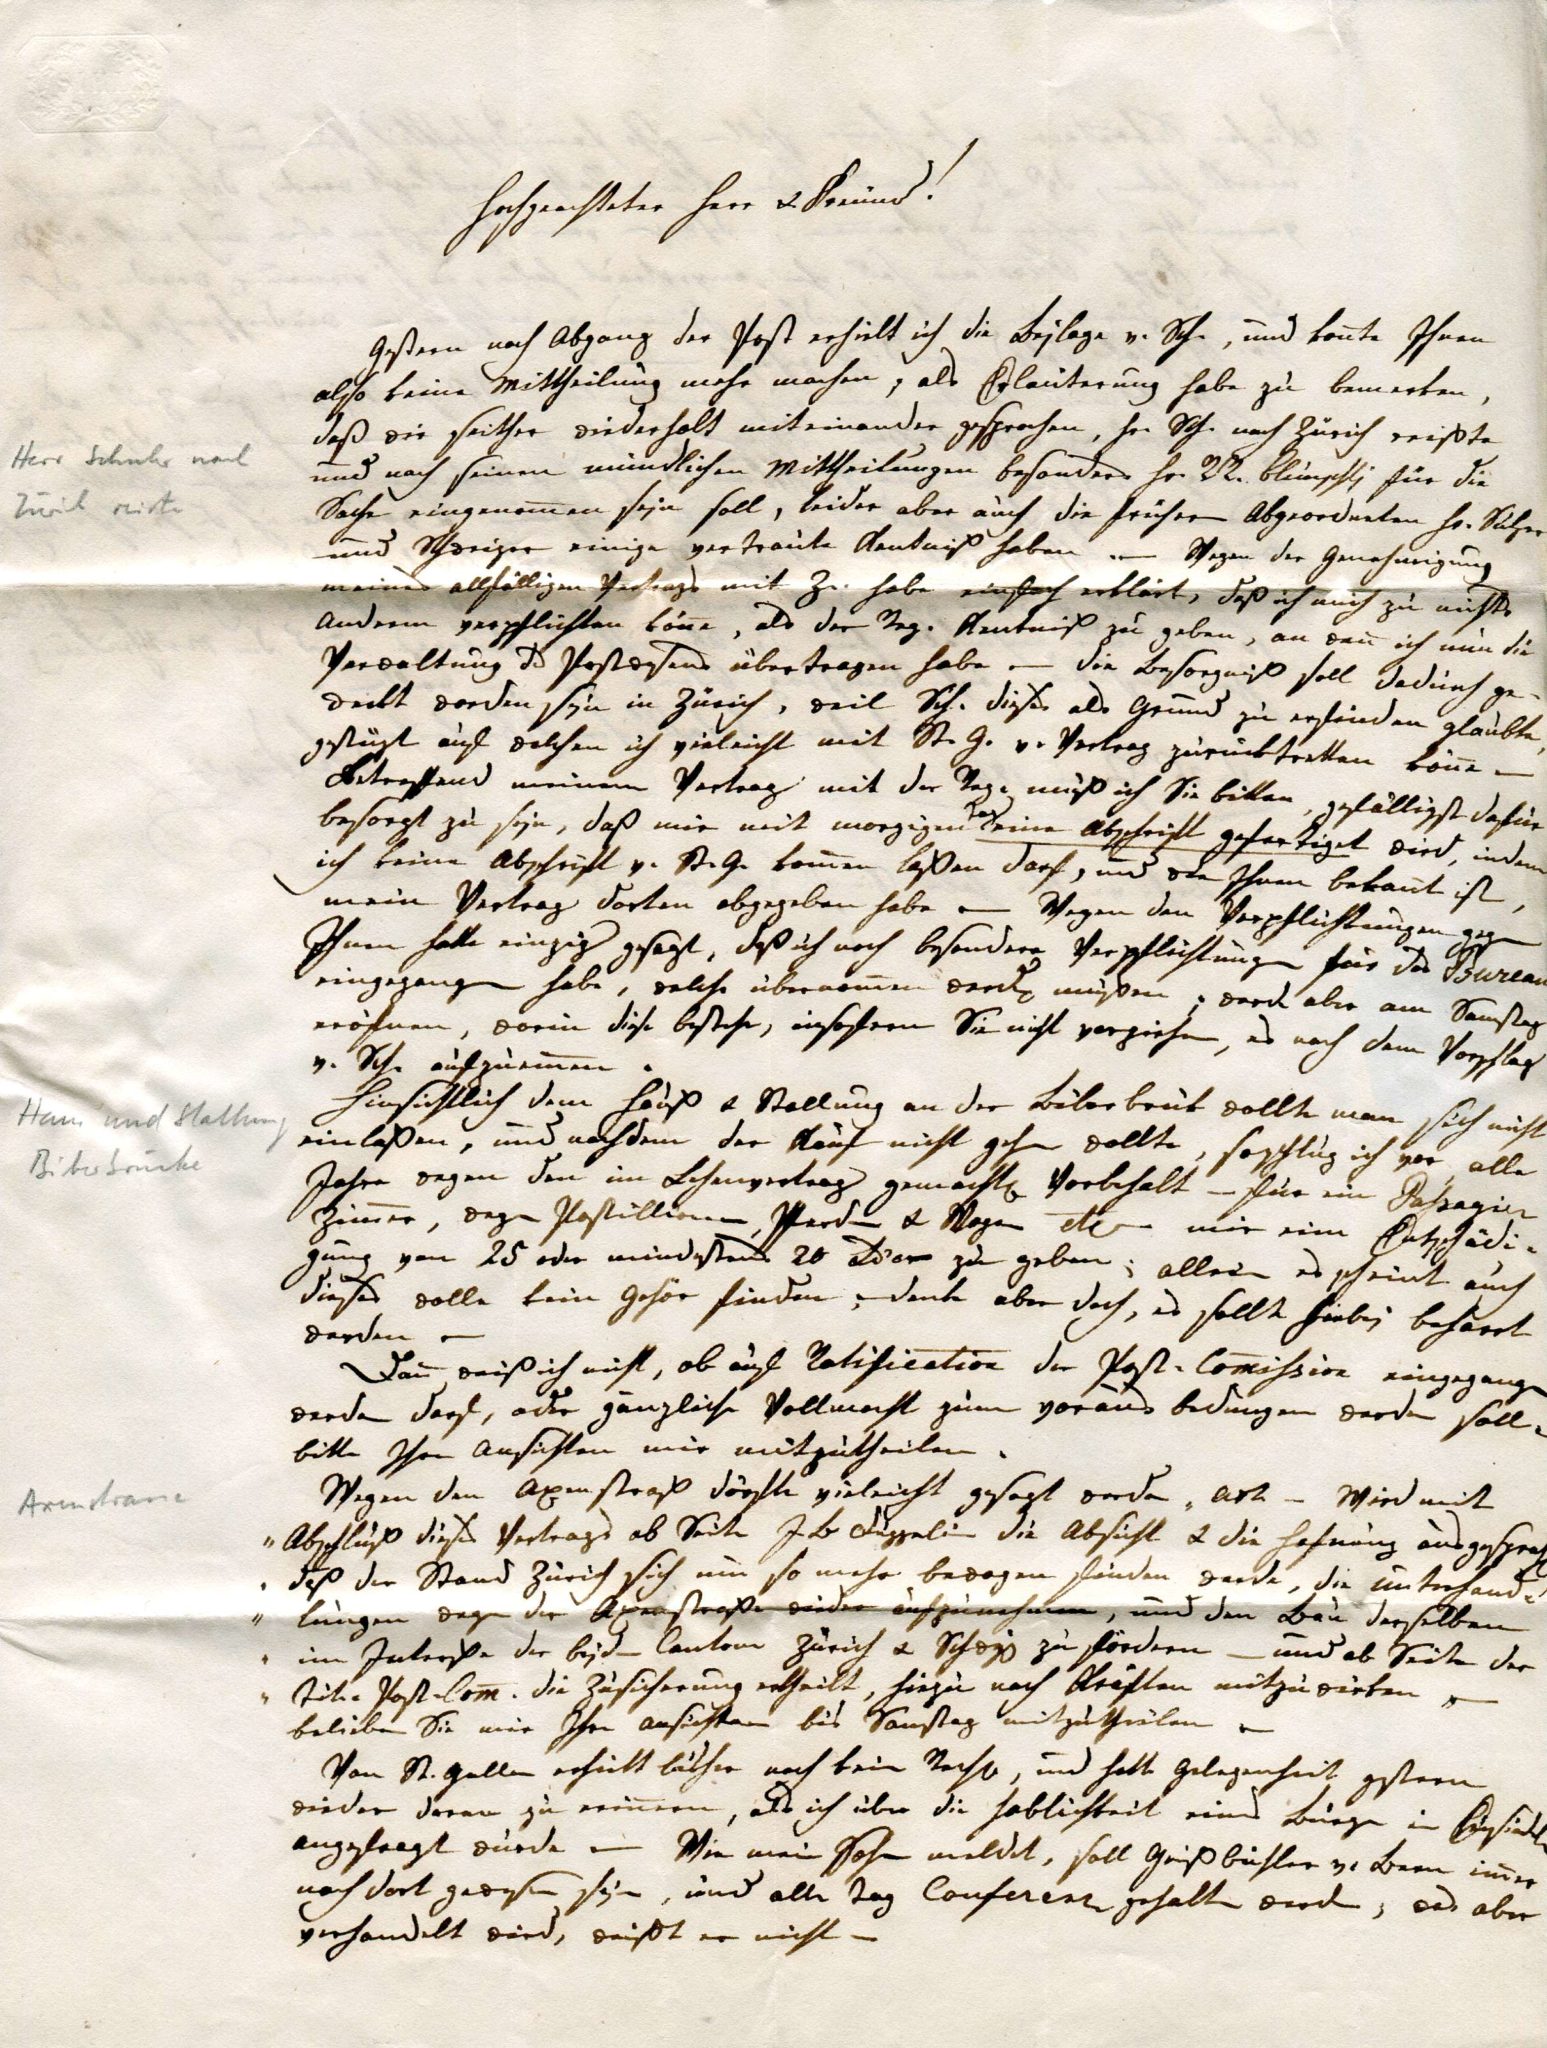 Hochgeachteter Herr & Freund!
Gestern nach Abgang der Post erhielt ich die Beylage v. Sch., und konte Ihnen
also keine Mittheilung mehr machen, als Erläuterung habe zu bemerken,
daß wir seither wiederholt miteinander gesprochen, Hr. Sch. nach Zürich reißte
Herr Schuler nach
Zürich reiste
und nach seinen mündlichen Mittheilungen besonders Hr. RR. Bluntschli für die
Sache eingenommen seyn soll, leider aber auch die frühern Abgeordneten Hr. Sulzer
und Schweizer einige vertraute Kentniß haben — Wegen der Genehmigung
meines allfälligen Vertrags mit Z. habe einfach erklärt, daß ich mich zu nichts
Anderm verpflichten könne, als der Reg. Kentniß zu geben, an wenn ich nun die
Verwaltung des Postwesens übertragen habe — die Besorgniß soll dadurch ge-
weckt worden seyn in Zürich, weil Sch. dieses als Grund zu erfinden glaubte,
gestüzt auf welchen ich vieleicht mit St. G. v. Vertrag zurücktretten könne —
Betreffend meinem Vertrag mit der Reg. muß ich Sie bitten, gefälligst dafür
besorgt zu seyn, daß mir mit morgigem Tag eine Abschrift gefertiget wird, indem
ich keine Abschrift v. St. G. kommen laßen darf, und wie Ihnen bekannt ist,
mein Vertrag dorten abgegeben habe — Wegen den Verpflichtungen gegen
Ihnen hatte einzig gesagt, daß ich noch besondere Verpflichtungen für das Bureau
eingegangen habe, welche übernommen werden müßen; werde aber am Samstag
eröfnen, worin diese bestehe, insofern Sie nicht vorziehen, es nach dem Vorschlag
v. Sch. aufzunemmen.
Hinsichtlich dem Hauß & Stallung an der Biberbruk wollte man sich nicht
Haus und Stallung
Biberbrücke
einlaßen, und nachdem der Kauf nicht gehen wollte, so schlug ich vor, alle
Jahre wegen den im Lehenvertrag gemachten Vorbehalt — für ein Passagier
Zimmer, wegen Postillionen, Pferden & Wagen etc — mir eine Entschädi-
gung von 25 oder mindestens 20 zu geben; allein es scheint auch
dieses wolle kein Gehör finden; denke aber doch, es sollte hiebei beharrt
werden —
Dann weiß ich nicht, ob auf Ratification der Post-Comission eingegangen
werden darf, oder gänzliche Vollmacht zum voraus bedungen werden soll.
bitte Ihre Ansichten mir mitzutheilen.
Wegen den Axenstraß dörfte vieleicht gesagt werden, Art — Wird mit
Axenstrasse
" Abschluß dieses Vertrags ab Seite die Absicht & die Hofnung ausgesprochen
" daß der Stand Zürich sich um so mehr bewogen finden werde, die Unterhand-
" lungen wegen der Axenstraße wieder aufzunehmen, und den Bau derselben
" im Interesse der beyden Cantone Zürich & Schwyz zu fördern — und ab Seite der
" Tit. Post-Com. die Zusicherung ertheilt, hiezu nach Kräften mitzuwirken —
belieben Sie mir Ihre Ansichten bis Samstag mitzutheilen —
Von St. Gallen erhielt bisher noch kein Rechß, und hatte Gelegenheit gestern
wieder daran zu erinnern, als ich über die Hablichkeit eines Bürgen in Einsiedeln
angefragt wurde — Wie mein Sohn meldet, soll Geißbühler v. Bern immer
noch dort gewesen seyn, und alle Tag Conferenz gehalten werden; was aber
verhandelt wird, weißt er nicht —